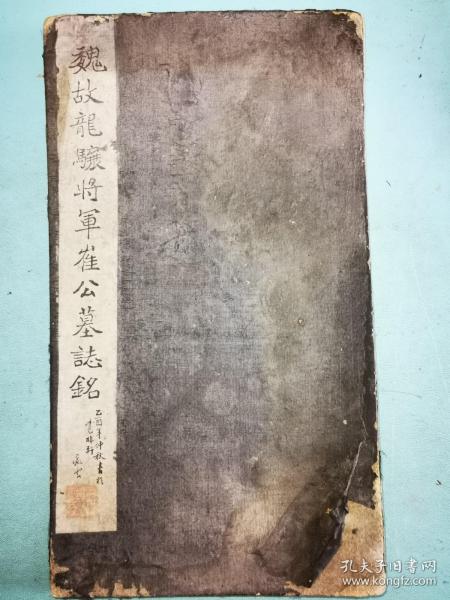 魏故龍驤將軍崔公墓誌銘
乙酉年仲秋書於
孔夫子旧书网
www.kongfz.com